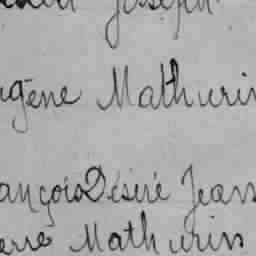 Joseph
ugène Mathurin
ançois Désiré Jean
erre Mathurin